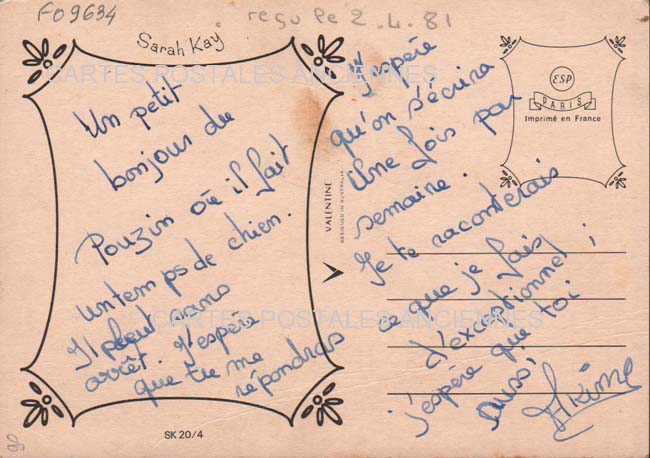 F09634
reçu le 2.4.81
Sarah Kay
CARTES POSTALES ANCIENNES
Un petit
bonjour du
Pouzin où il fait
un temps de chien.
Il pleut sans
arrêt. J'espère
que tu me
répondras
CARTES POSTALES ANCIENNES
SK 20/4
VALENTINE
DESIGNED IN AUSTRALIA
J'espère
qu'on s'écrira
une fois par
semaine.
Je te raconterais
ce que je fais
d'exceptionnel ;
j'espère que toi
aussi,
ESP
PARIS
Imprimé en France